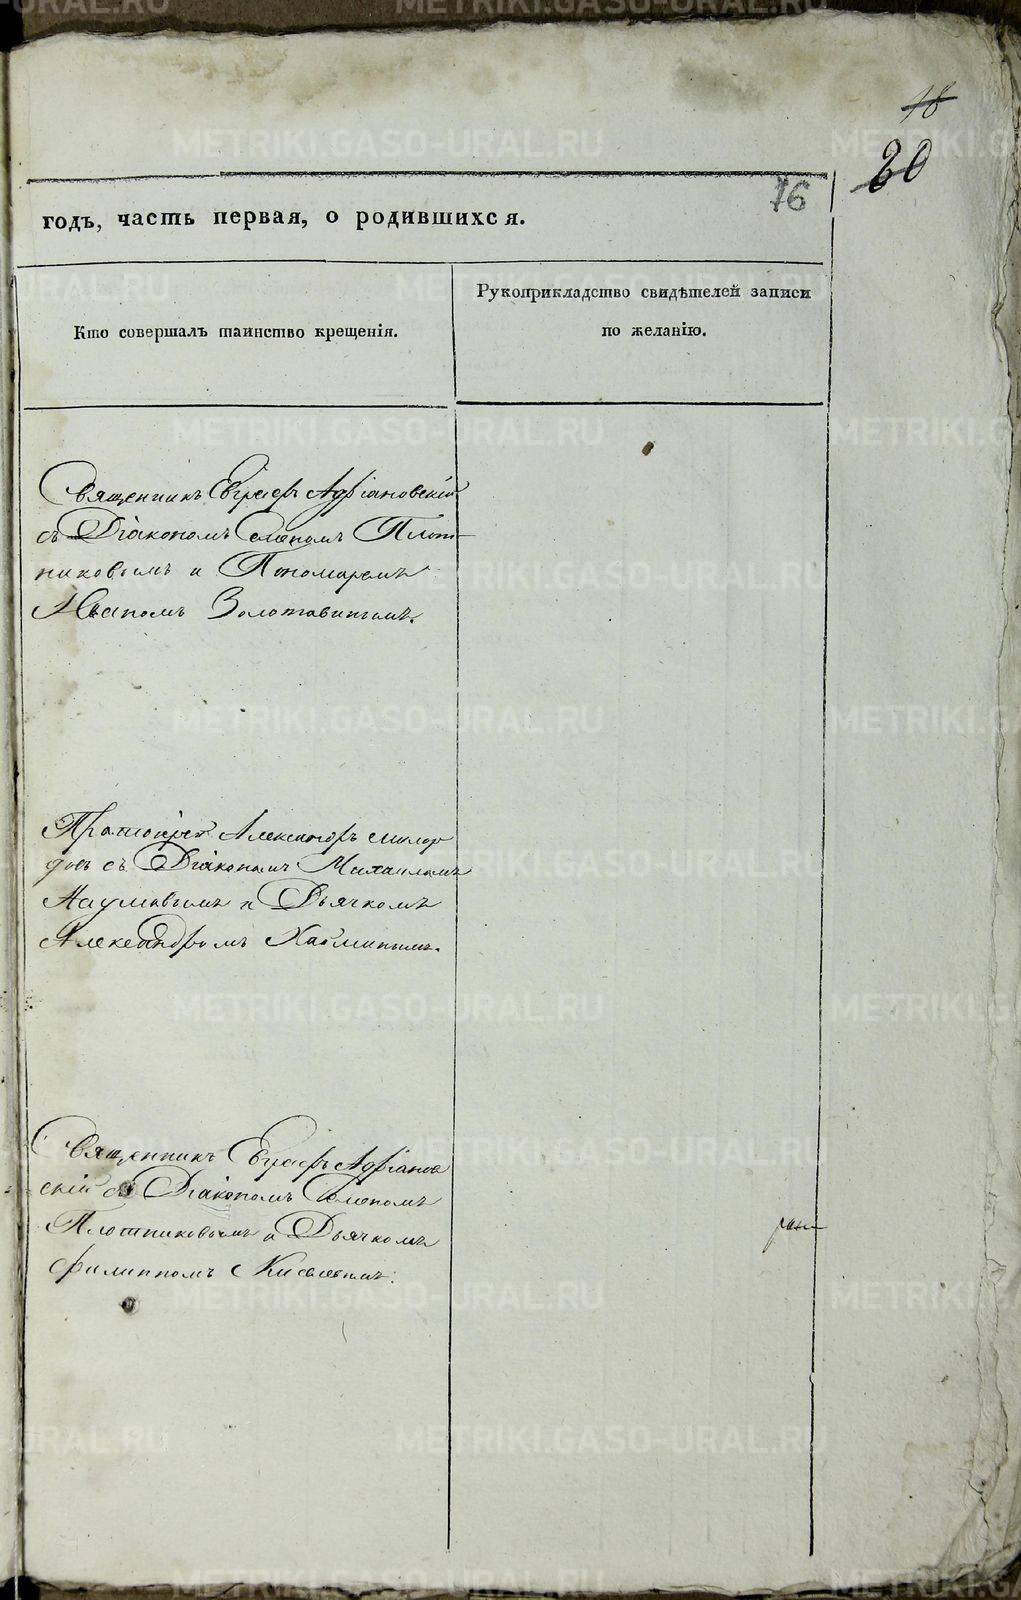 18
20
16
годъ, часть первая, о родившихся.
Кто совершалъ таинство крещенія.
Рукоприкладство свидѣтелей записи
по желанію.
Священникъ Евграфъ Адріановскій
съ Діакономъ Семеномъ Плот-
никовымъ и Пономаремъ
Иваномъ Золотавинымъ.
Протоіерей Александръ
съ Діакономъ Михаиломъ
Наумовымъ и Дьячкомъ
Александромъ
Священникъ Евграфъ Адріанов
скій съ Діакономъ Семеномъ
Плотниковымъ и Дьячкомъ
Филиппомъ Киселевымъ.
METRIKI.GASO-URAL.RU